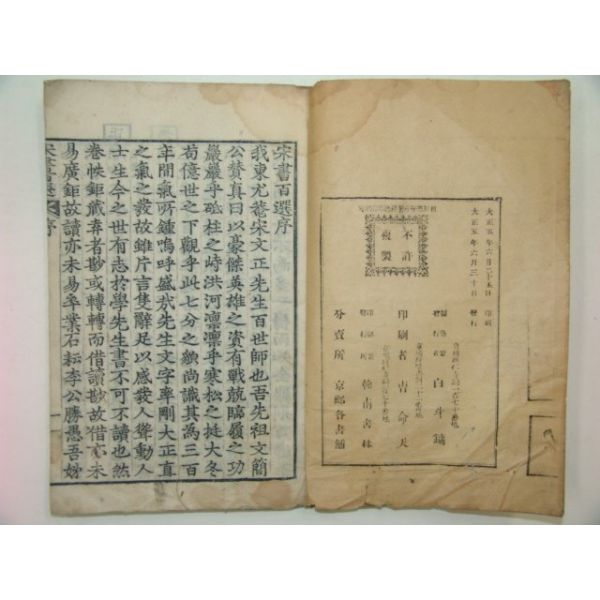 大正五年六月二十五日 印刷
大正五年六月三十日 發行
不許
複製
白斗鏞
印刷者
翰南書林
分賣所 京鄉各書舖
宋書百選序
我東尤菴宋文正先生百世師也吾先祖文簡
公贊眞曰以豪傑英雄之資有戰兢臨履之功
巖巖乎砥柱之峙洪河凜凜乎寒松之挺大冬
苟億世之下觀乎此七分之繪尙識其爲三百
年間氣所鍾嗚呼盛哉先生文字率剛大正直
之氣之發故雖片言隻辭足以感發人聳動人
士生今之世有志於學先生書不可不讀也然
卷帙鉅藏弆者尠或轉轉而借讀尠故借亦未
易廣鉅故讀亦未易卒業石耘李公勝愚吾
宋書百選 序